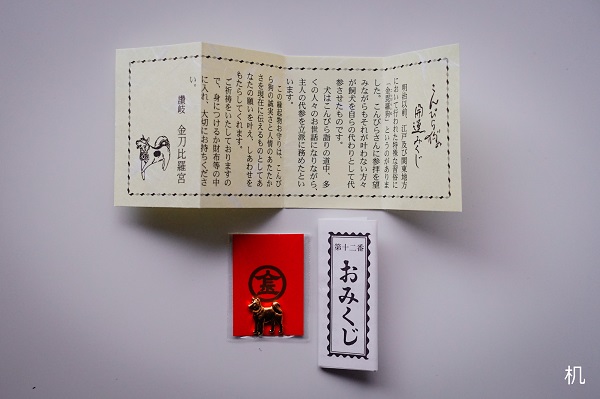 こんぴら狗
開運みくじ
明治以前、江戸及び関東地方
において行われた特殊な習俗に
「金毘羅狗」というのがありま
した。こんぴらさんに参拝を望
みながらもそれが叶わない方々
が飼犬を自らの代わりとして代
参させたものです。
犬はこんぴら詣りの道中、多
くの人々のお世話になりながら、
主人の代参を立派に務めたとい
います。
この縁起物お守りは、こんぴ
ら狗の誠実さと人情のあたたか
さを現在に伝えるものとしてあ
なたの願いを叶え、しあわせを
もたらしてくれます。
ご祈祷をいたしておりますの
で、身につけるか財布等の中
に入れ、大切にお持ちくださ
い。
讃岐 金刀比羅宮
金
第十二番
おみくじ
机